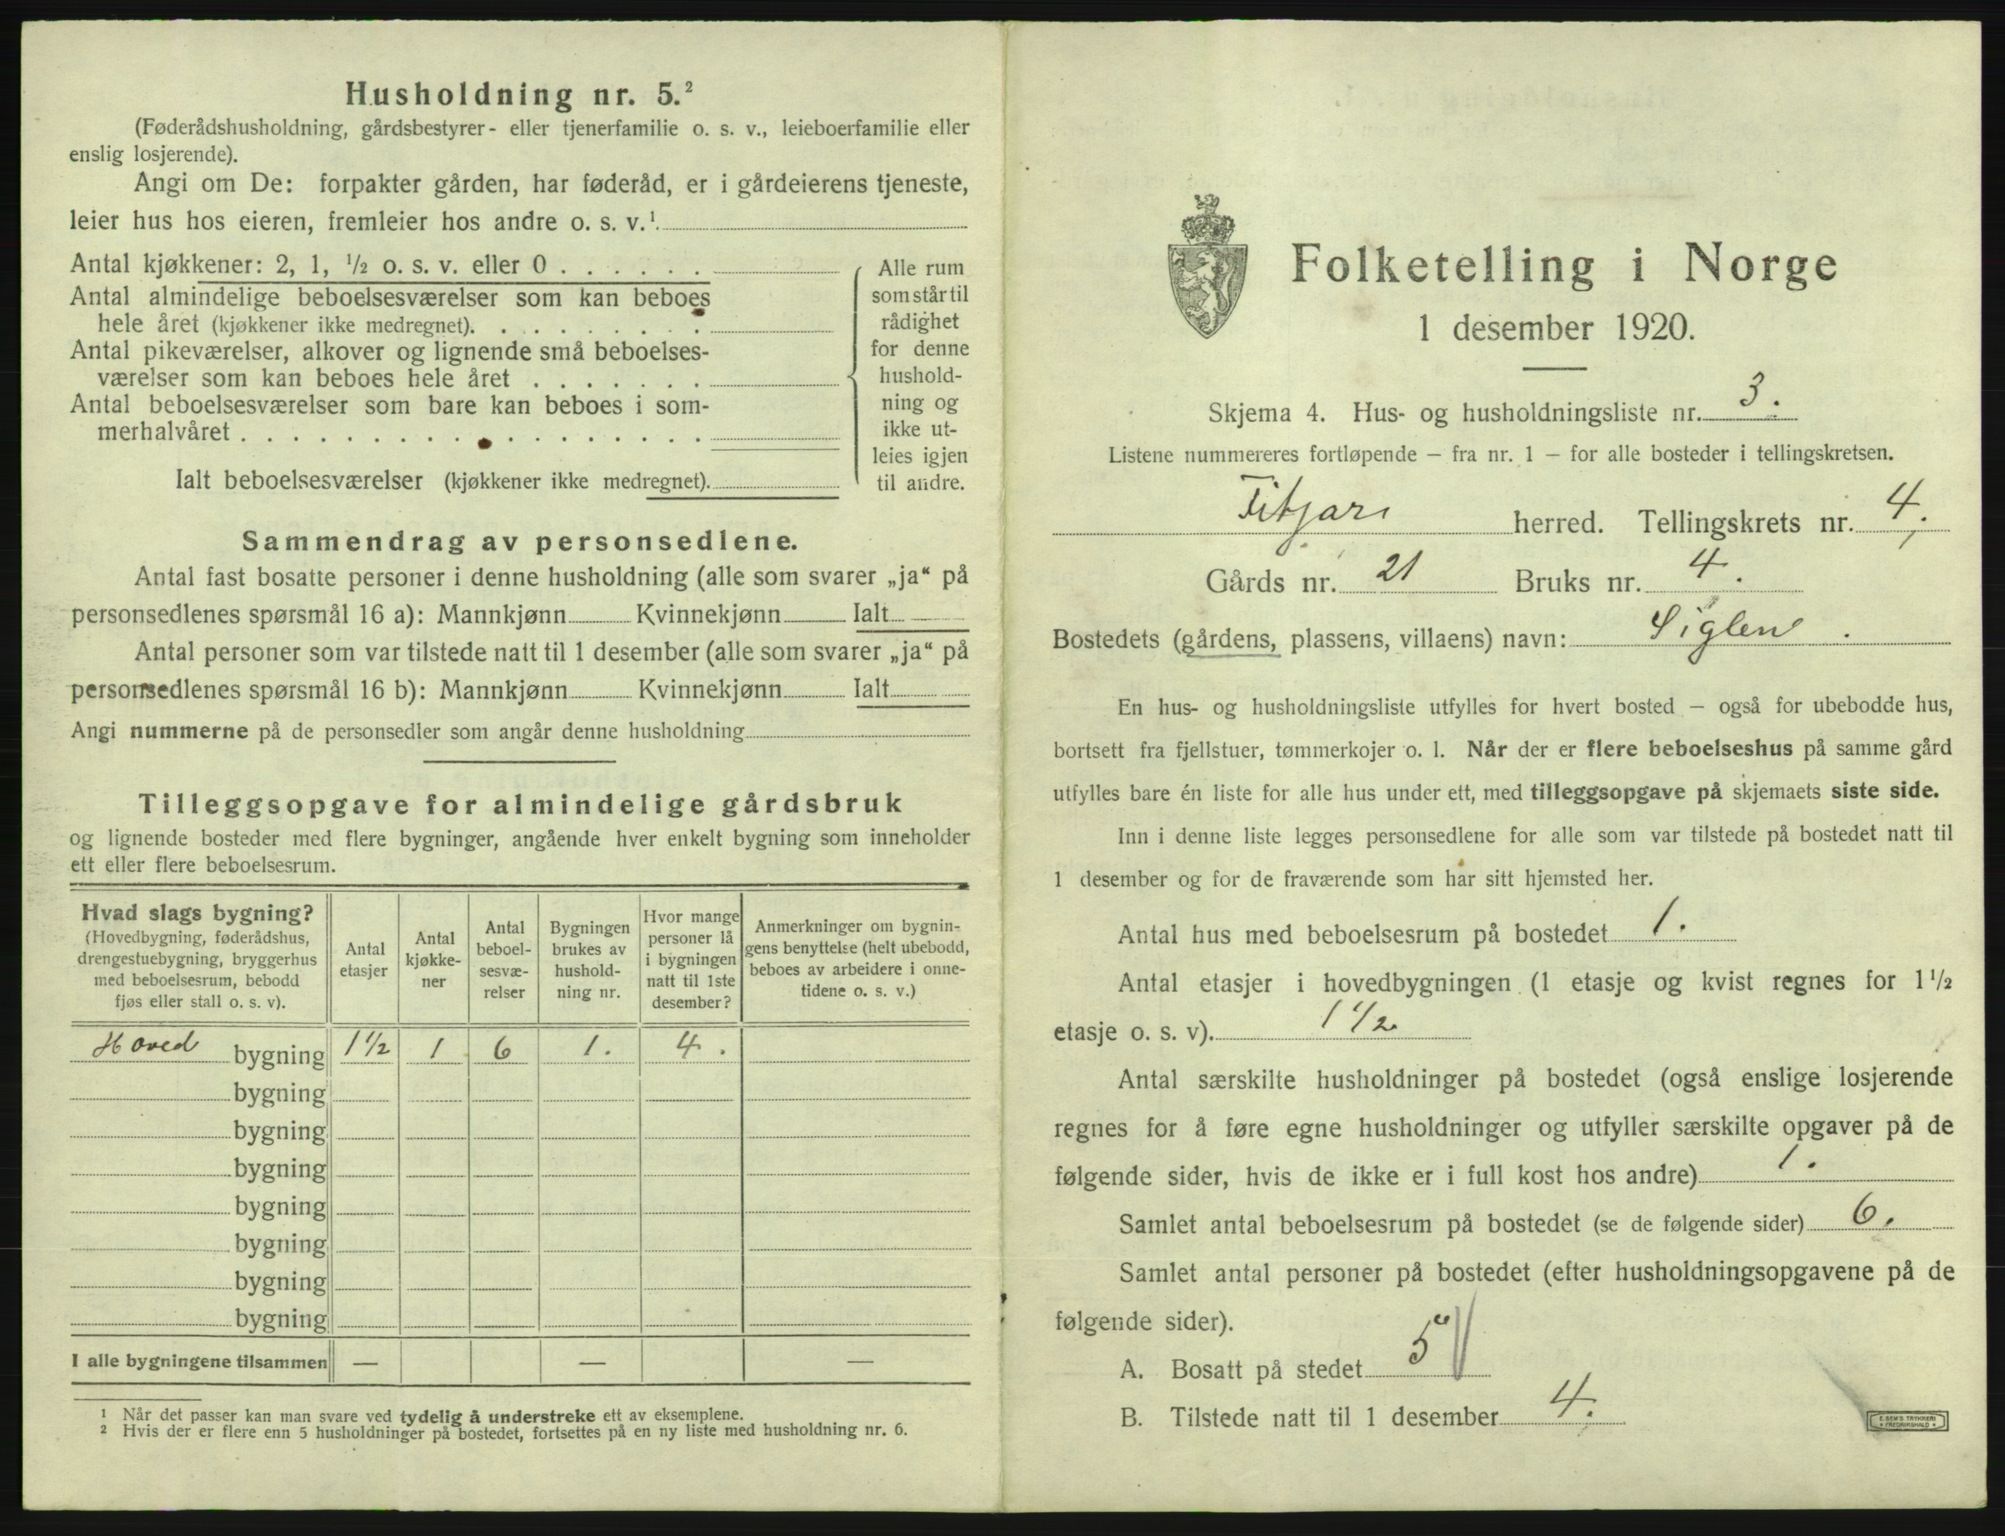 Husholdning nr. 5.²
(Føderådshusholdning, gårdsbestyrer- eller tjenerfamilie o. s. v., leieboerfamilie eller
enslig losjerende).
Angi om De: forpakter gården, har føderåd, er i gårdeierens tjeneste,
leier hus hos eieren, fremleier hos andre o. s. v.¹
Antal kjøkkener: 2, 1, ½ o. s. v. eller 0 . . . . . .
Antal almindelige beboelsesværelser som kan beboes
hele året (kjøkkener ikke medregnet). . . . . . . . .
Antal pikeværelser, alkover og lignende små beboelses-
værelser som kan beboes hele året . . . . . . .
Antal beboelsesværelser som bare kan beboes i som-
merhalvåret . . . . . . . . . . . . . . . . . .
Ialt beboelsesværelser (kjøkkener ikke medregnet).
Alle rum
som står til
rådighet
for denne
hushold-
ning og
ikke ut-
leies igjen
til andre.
Sammendrag av personsedlene.
Antal fast bosatte personer i denne husholdning (alle som svarer „ja“ på
personsedlenes spørsmål 16 a): Mannkjønn Kvinnekjønn Ialt
Antal personer som var tilstede natt til 1 desember (alle som svarer „ja“ på
personsedlenes spørsmål 16 b): Mannkjønn Kvinnekjønn Ialt
Angi nummerne på de personsedler som angår denne husholdning
Tilleggsopgave for almindelige gårdsbruk
og lignende bosteder med flere bygninger, angående hver enkelt bygning som inneholder
ett eller flere beboelsesrum.
Hvad slags bygning?
(Hovedbygning, føderådshus,
drengestuebygning, bryggerhus
med beboelsesrum, bebodd
fjøs eller stall o. s. v).
Antal
etasjer
Antal
kjøkke-
ner
Antal
beboel-
sesvæ-
relser
Bygningen
brukes av
hushold-
ning nr.
Hvor mange
personer lå
i bygningen
natt til 1ste
desember?
Anmerkninger om bygnin-
gens benyttelse (helt ubebodd,
beboes av arbeidere i onne-
tidene o. s. v.)
Hoved bygning 1½ 1 6 1. 4.
bygning
bygning
bygning
bygning
bygning
bygning
bygning
I alle bygningene tilsammen — — —
¹ Når det passer kan man svare ved tydelig å understreke ett av eksemplene.
² Hvis der er flere enn 5 husholdninger på bostedet, fortsettes på en ny liste med husholdning nr. 6.
Folketelling i Norge
1 desember 1920.
Skjema 4. Hus- og husholdningsliste nr. 3.
Listene nummereres fortløpende — fra nr. 1 — for alle bosteder i tellingskretsen.
Fitjar herred. Tellingskrets nr. 4.
Gårds nr. 21 Bruks nr. 4.
Bostedets (gårdens, plassens, villaens) navn: Siglen.
En hus- og husholdningsliste utfylles for hvert bosted — også for ubebodde hus,
bortsett fra fjellstuer, tømmerkojer o. l. Når der er flere beboelseshus på samme gård
utfylles bare én liste for alle hus under ett, med tilleggsopgave på skjemaets siste side.
Inn i denne liste legges personsedlene for alle som var tilstede på bostedet natt til
1 desember og for de fraværende som har sitt hjemsted her.
Antal hus med beboelsesrum på bostedet 1.
Antal etasjer i hovedbygningen (1 etasje og kvist regnes for 1½
etasje o. s. v). 1½.
Antal særskilte husholdninger på bostedet (også enslige losjerende
regnes for å føre egne husholdninger og utfyller særskilte opgaver på de
følgende sider, hvis de ikke er i full kost hos andre) 1.
Samlet antal beboelsesrum på bostedet (se de følgende sider) 6.
Samlet antal personer på bostedet (efter husholdningsopgavene på de
følgende sider).
A. Bosatt på stedet 5
B. Tilstede natt til 1 desember 4.
E. SEM'S TRYKKERI
FREDRIKSHALD